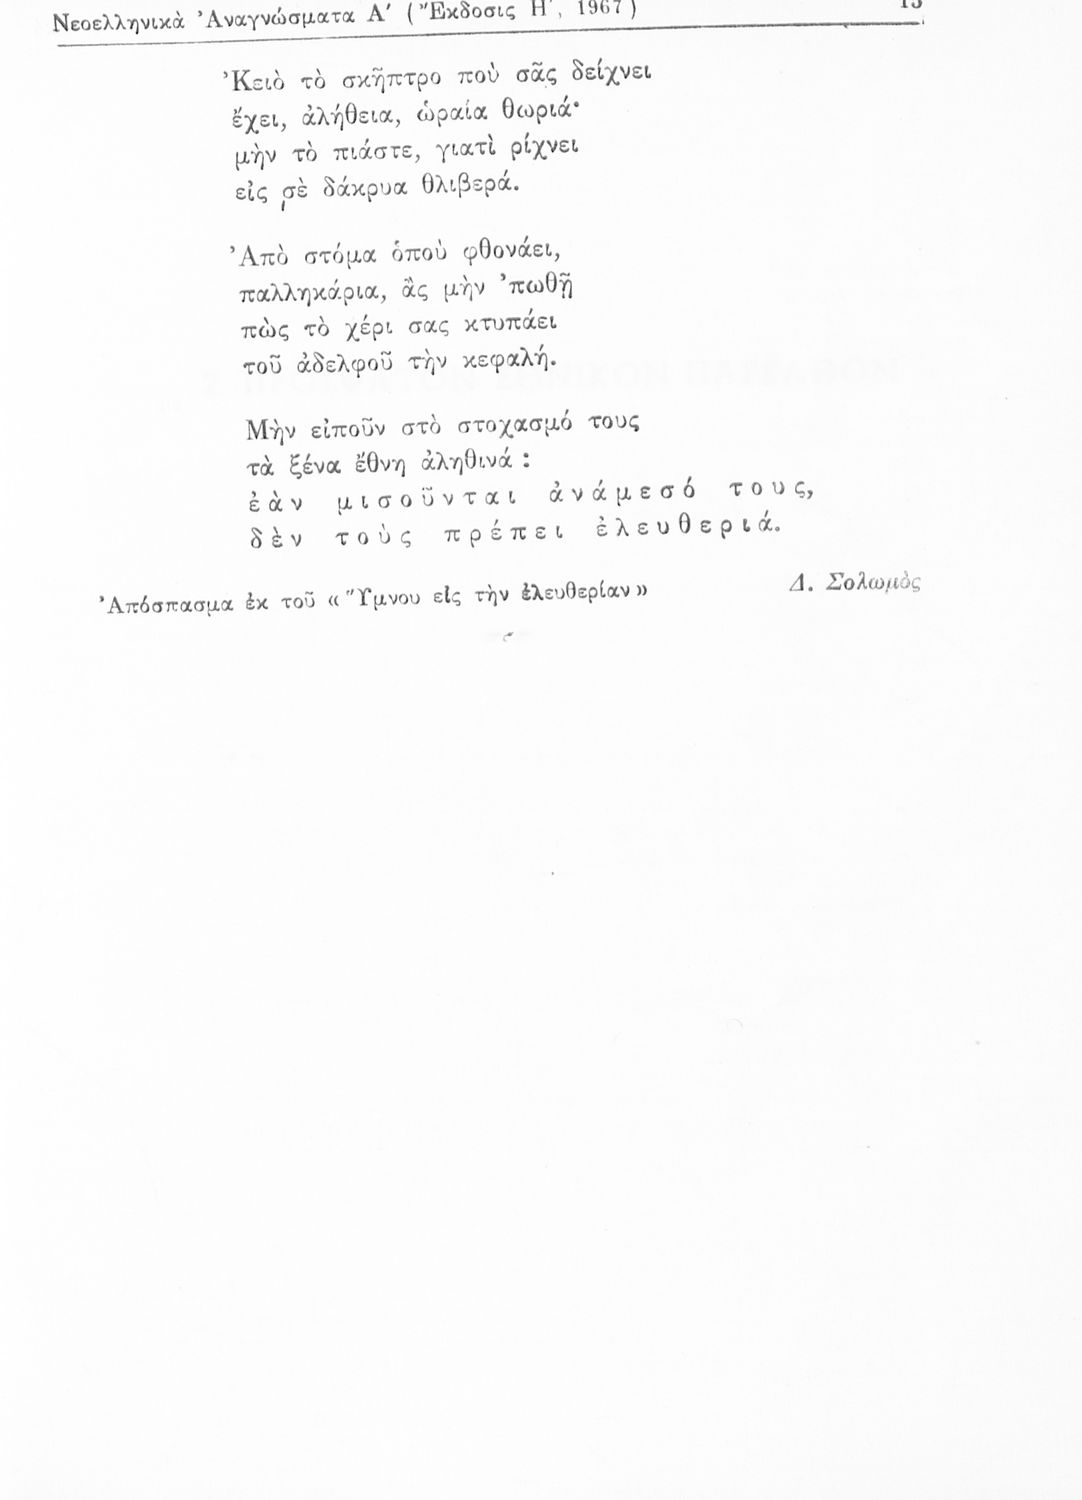 Νεοελληνικὰ Ἀναγνώσματα Α′ (Ἔκδοσις Η′, 1967)
Ἐκειὸ τὸ σκῆπτρο ποὺ σᾶς δείχνει
ἔχει, ἀλήθεια, ὡραία θωριά·
μὴν τὸ πιάστε, γιατὶ ρίχνει
εἰς σὲ δάκρυα θλιβερά.
Ἀπὸ στόμα ὁποὺ φθονάει,
παλληκάρια, ἂς μὴν ᾿πωθῇ
πὼς τὸ χέρι σας κτυπάει
τοῦ ἀδελφοῦ τὴν κεφαλή.
Μὴν εἰποῦν στὸ στοχασμό τους
τὰ ξένα ἔθνη ἀληθινά :
ἐὰν μισοῦνται ἀνάμεσό τους,
δὲν τοὺς πρέπει ἐλευθεριά.
Ἀπόσπασμα ἐκ τοῦ «Ὕμνου εἰς τὴν ἐλευθερίαν» Δ. Σολωμὸς